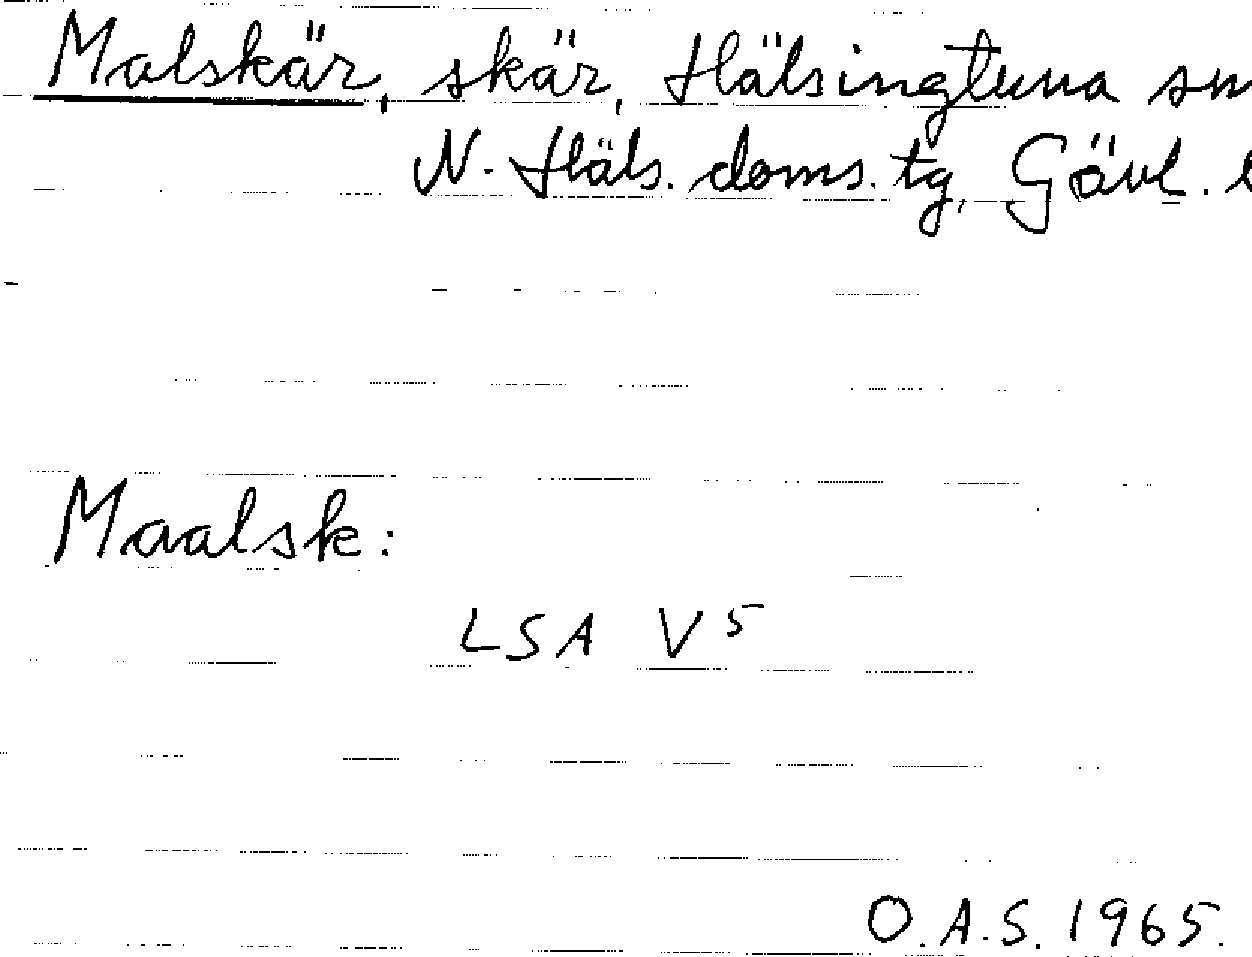 Malskär, skär, Hälsingtuna sn
N. Häls. doms. tg, Gävl. l
Maalsk:
LSA V 5
O.A.S. 1965.